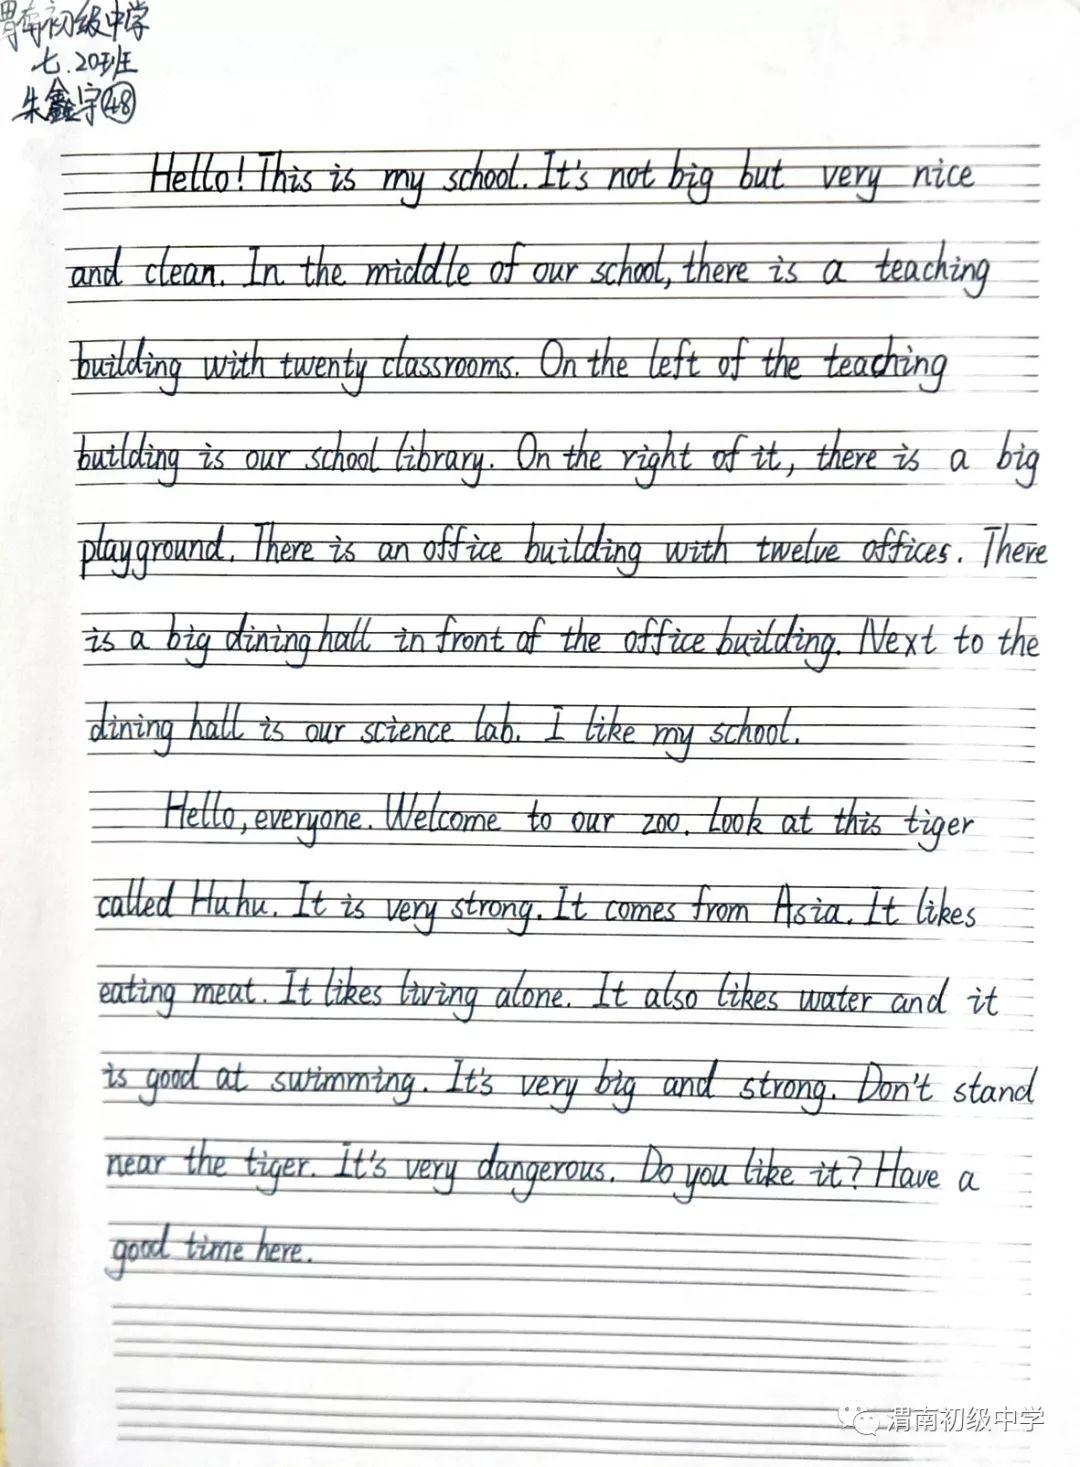 渭南初级中学
七.20班
朱鑫宇48
Hello! This is my school. It's not big but very nice
and clean. In the middle of our school, there is a teaching
building with twenty classrooms. On the left of the teaching
building is our school library. On the right of it, there is a big
playground. There is an office building with twelve offices. There
is a big dining hall in front of the office building. Next to the
dining hall is our science lab. I like my school.
Hello, everyone. Welcome to our zoo. Look at this tiger
called Huhu. It is very strong. It comes from Asia. It likes
eating meat. It likes living alone. It also likes water and it
is good at swimming. It's very big and strong. Don't stand
near the tiger. It's very dangerous. Do you like it? Have a
good time here.
渭南初级中学